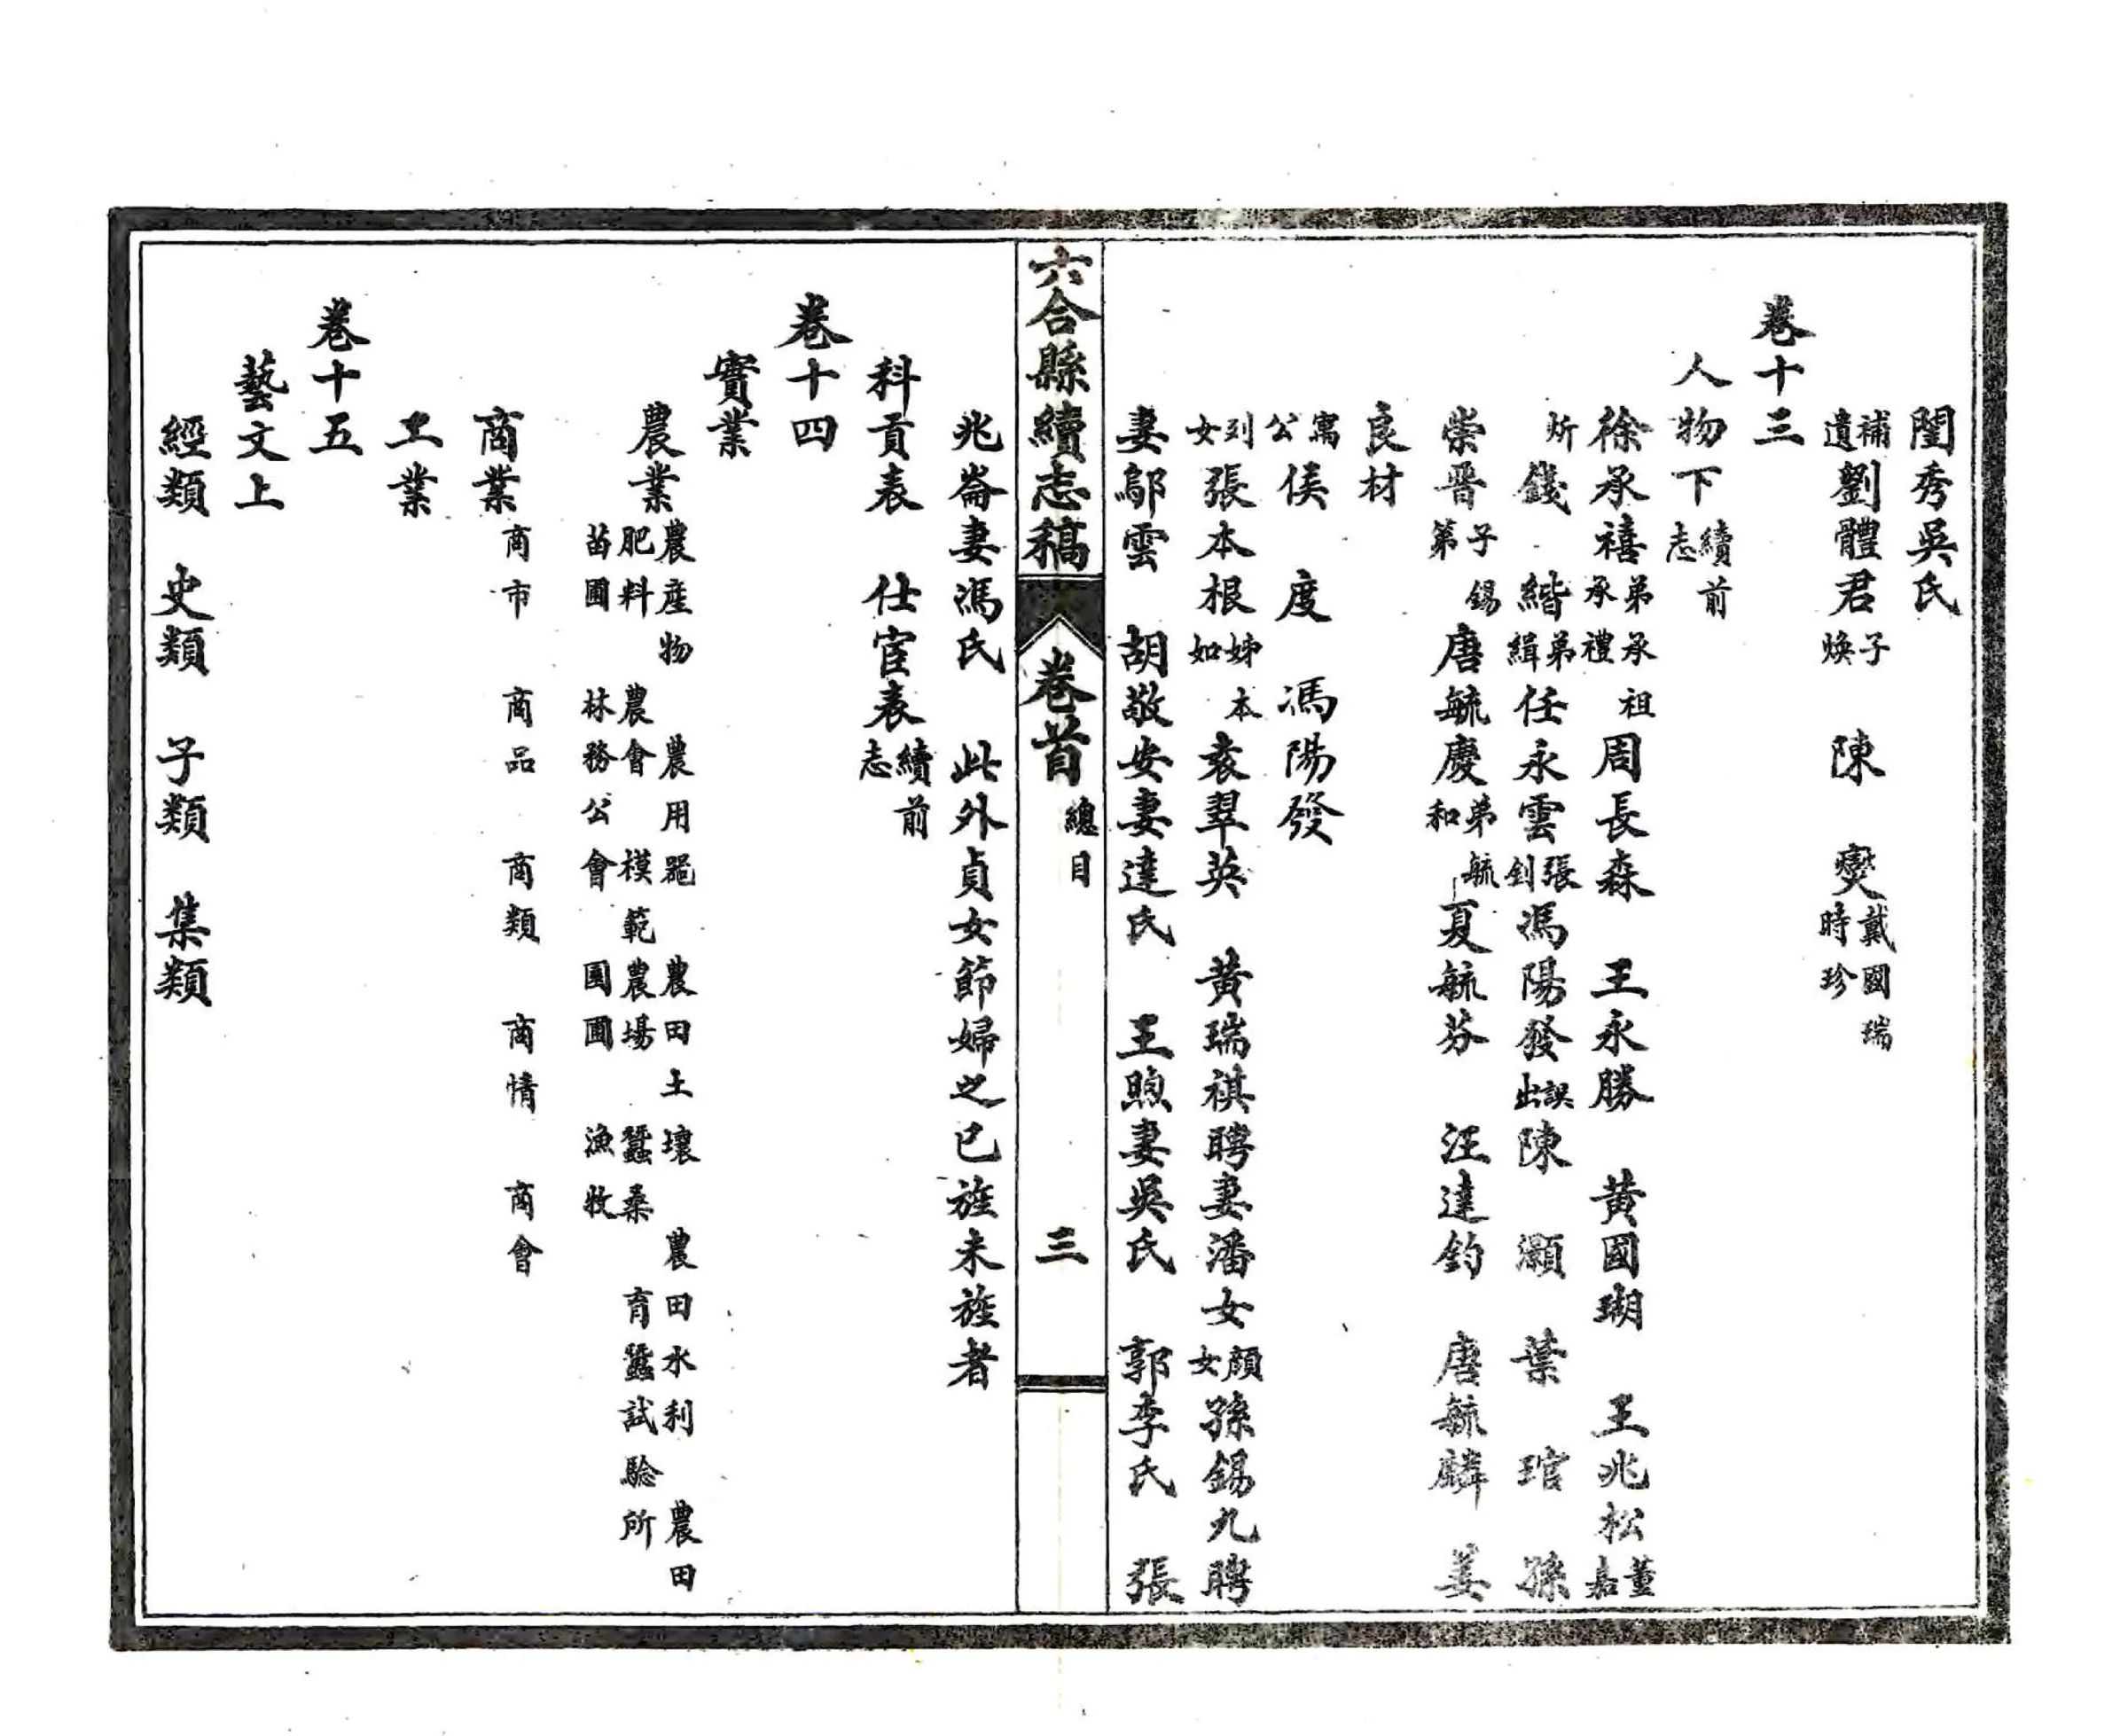 閨秀吳氏
補遺劉體君子煥　陳　燮戴國瑞時珍
卷十三
人物下續前志
徐承禧弟承祖承禮周長森　王永勝　黃國瑚　王兆松董嘉
炘錢　緒弟緝任永雲張釗馮陽發誤出陳　灝　葉　琯　孫
崇晉子錫第唐毓慶弟毓和夏毓芬　汪達鈞　唐毓麟　姜
良材
寓公侯　度　馮陽發
列女張本根姊本如袁翠英　黃瑞祺聘妻潘女顏女孫錫九聘
妻鄔雲　胡敬安妻達氏　王煦妻吳氏　郭李氏　張
六合縣續志稿　卷首　總目　三
兆崙妻馮氏　此外貞女節婦之已旌未旌者
科貢表　仕宦表續前志
卷十四
實業
農業農產物　農用器　農田土壤　農田水利　農田
肥料　農會　模範農場　蠶桑　育蠶試驗所
苗圃　林務公會　園圃　漁牧
商業商市　商品　商類　商情　商會
工業
卷十五
藝文上
經類　史類　子類　集類